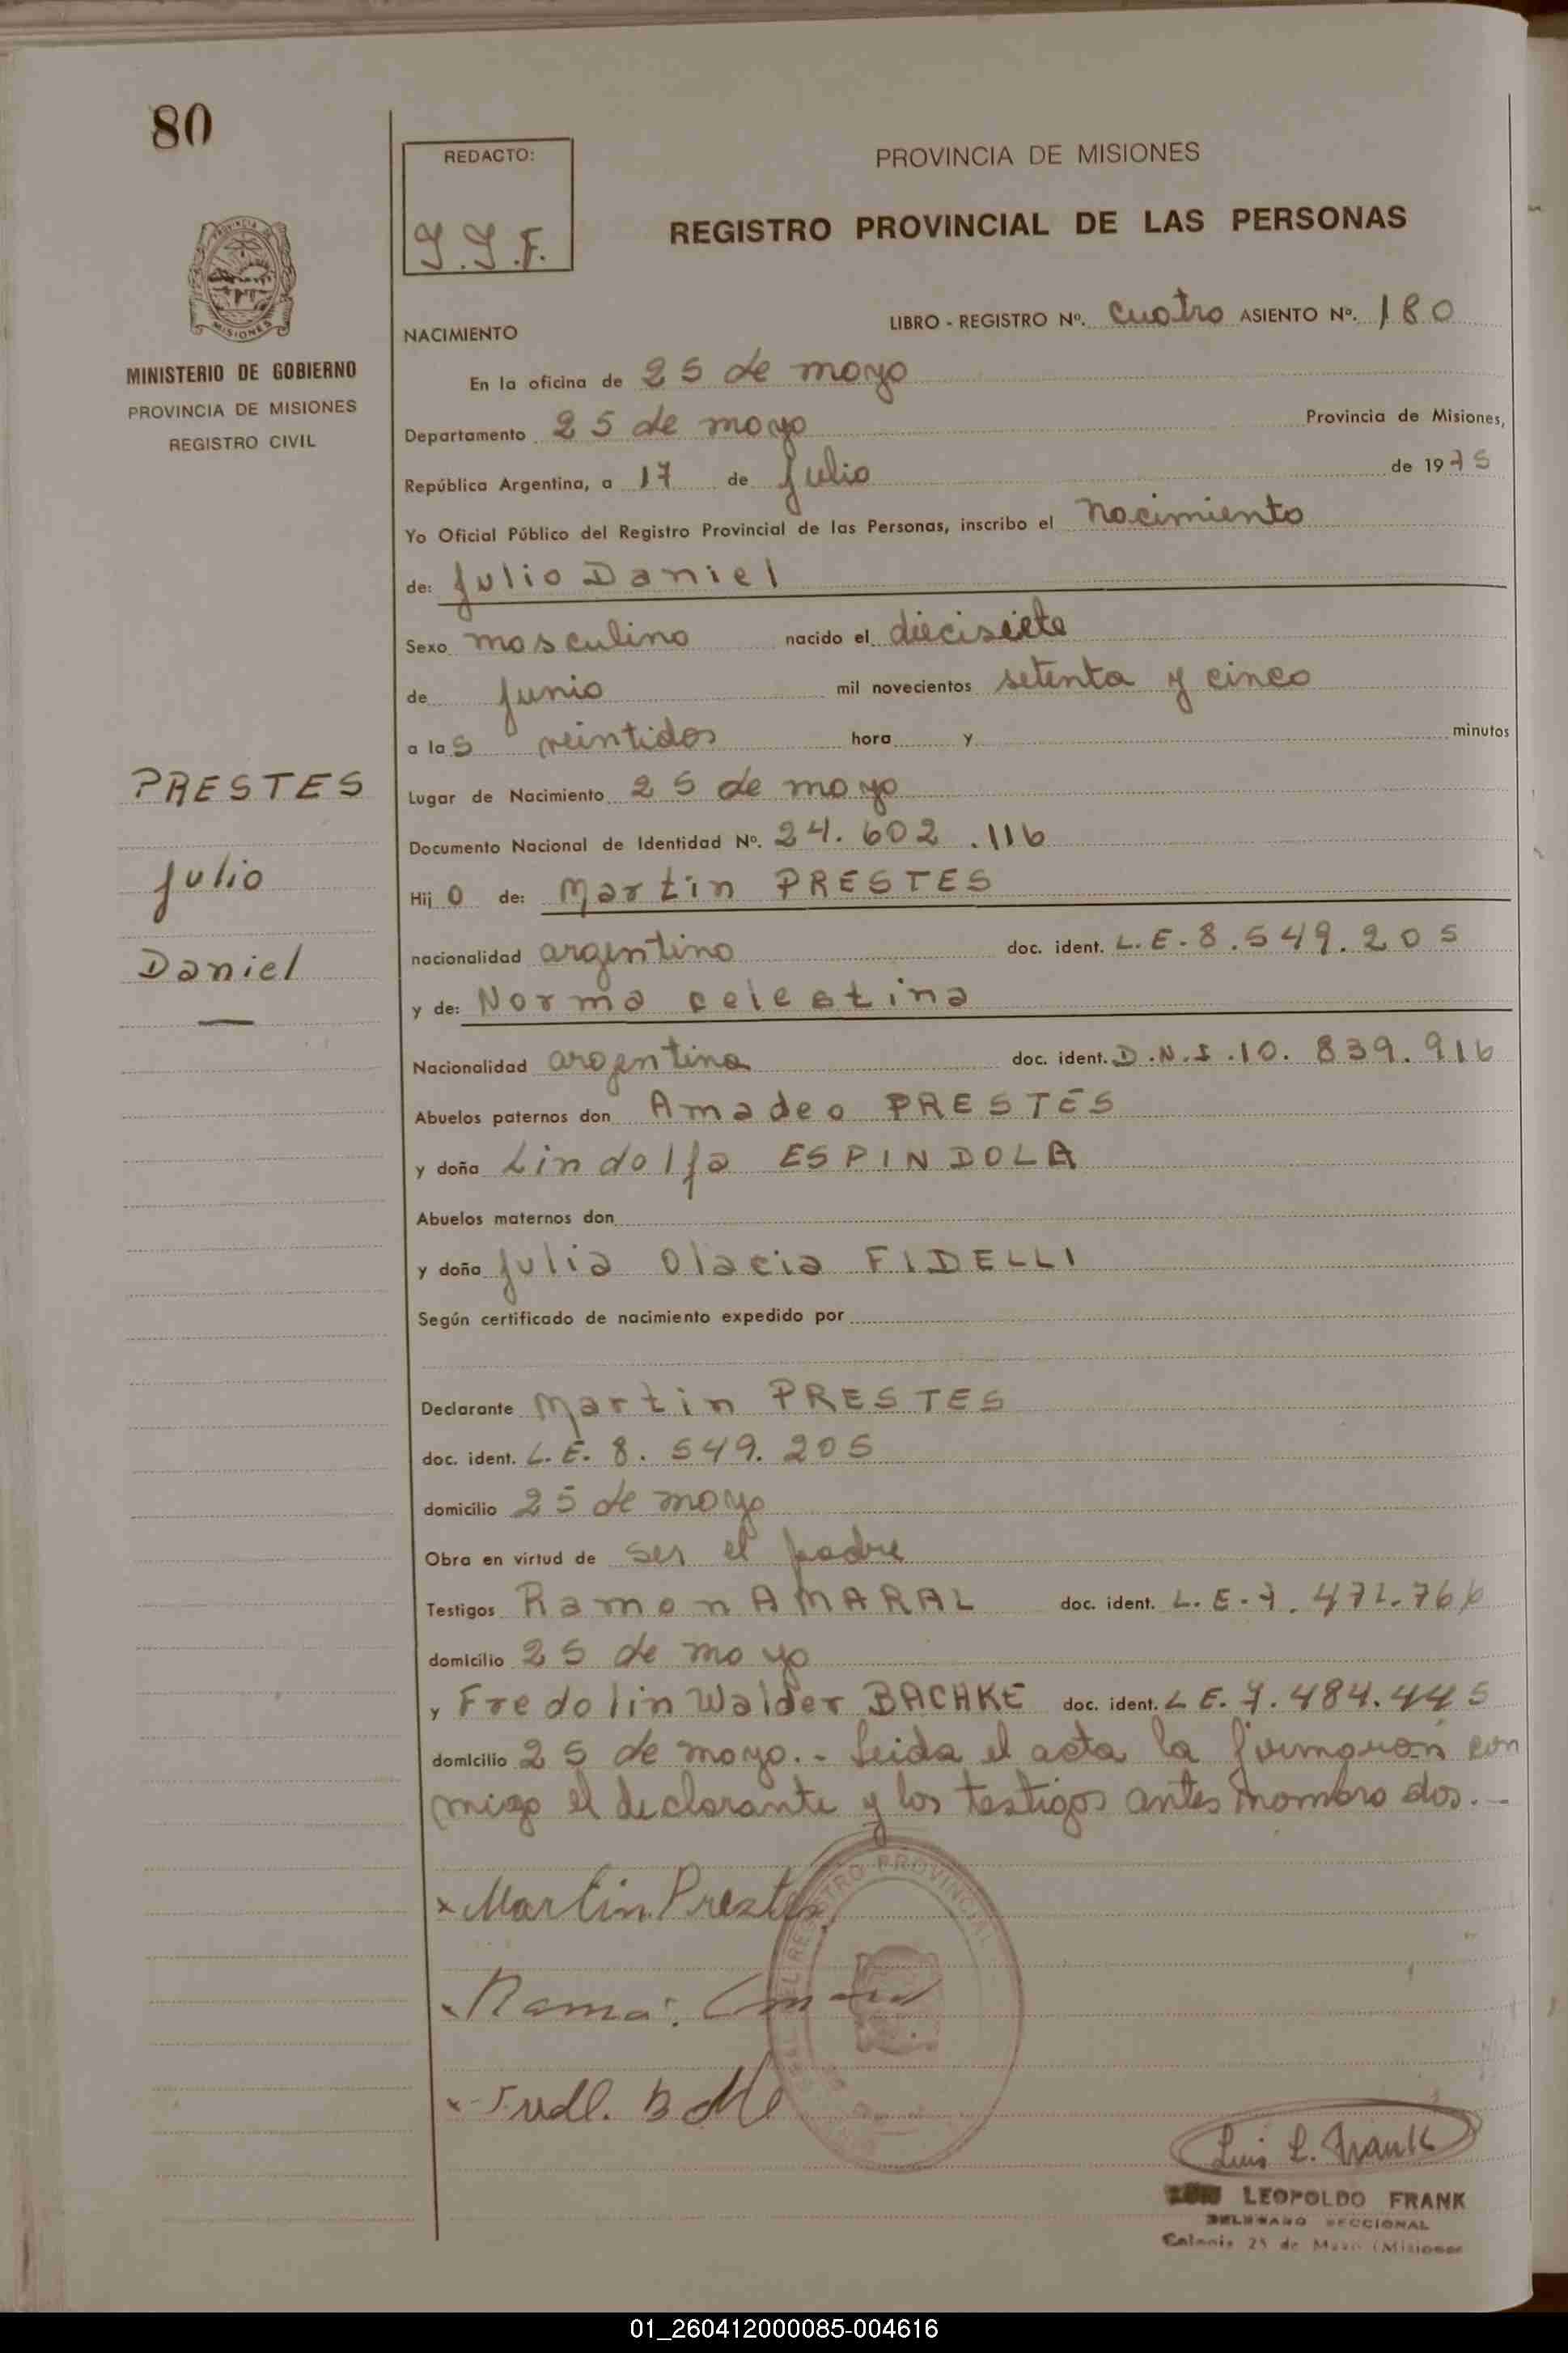 80
REDACTO:
J.J.F.
PROVINCIA DE MISIONES
REGISTRO PROVINCIAL DE LAS PERSONAS
MISIONES
MINISTERIO DE GOBIERNO
PROVINCIA DE MISIONES
REGISTRO CIVIL
LIBRO - REGISTRO Nº. cuatro ASIENTO Nº. 180
NACIMIENTO
En la oficina de 25 de mayo
Departamento 25 de mayo Provincia de Misiones,
República Argentina, a 17 de Julio de 1975
Yo Oficial Público del Registro Provincial de las Personas, inscribo el nacimiento
de: Julio Daniel
Sexo masculino nacido el diecisiete
de Junio mil novecientos setenta y cinco
a las veintidos hora y minutos
PRESTES
Julio
Daniel
Lugar de Nacimiento 25 de mayo
Documento Nacional de Identidad Nº. 24.602.116
Hijo de: Martin PRESTES
nacionalidad argentino doc. ident. L.E.8.549.205
y de: Norma celestina
Nacionalidad argentina doc. ident. D.N.I.10.839.916
Abuelos paternos don Amadeo PRESTES
y doña Lindolfa ESPINDOLA
Abuelos maternos don
y doña Julia Olacia FIDELLI
Según certificado de nacimiento expedido por
Declarante Martin PRESTES
doc. ident. L.E. 8.549.205
domicilio 25 de mayo
Obra en virtud de ser el padre
Testigos Ramon AMARAL doc. ident. L.E.7.471.766
domicilio 25 de mayo
y Fredolin Walder BACHKE doc. ident. L E.7.484.445
domicilio 25 de mayo.- Leida el acta la firmaron con
migo el declarante y los testigos antes nombrados.-
x Martin Prestes
REGISTRO PROVINCIAL
Luis L. Frank
LEOPOLDO FRANK
DELEGADO SECCIONAL
Colonia 25 de Mayo (Misiones
01_260412000085-004616